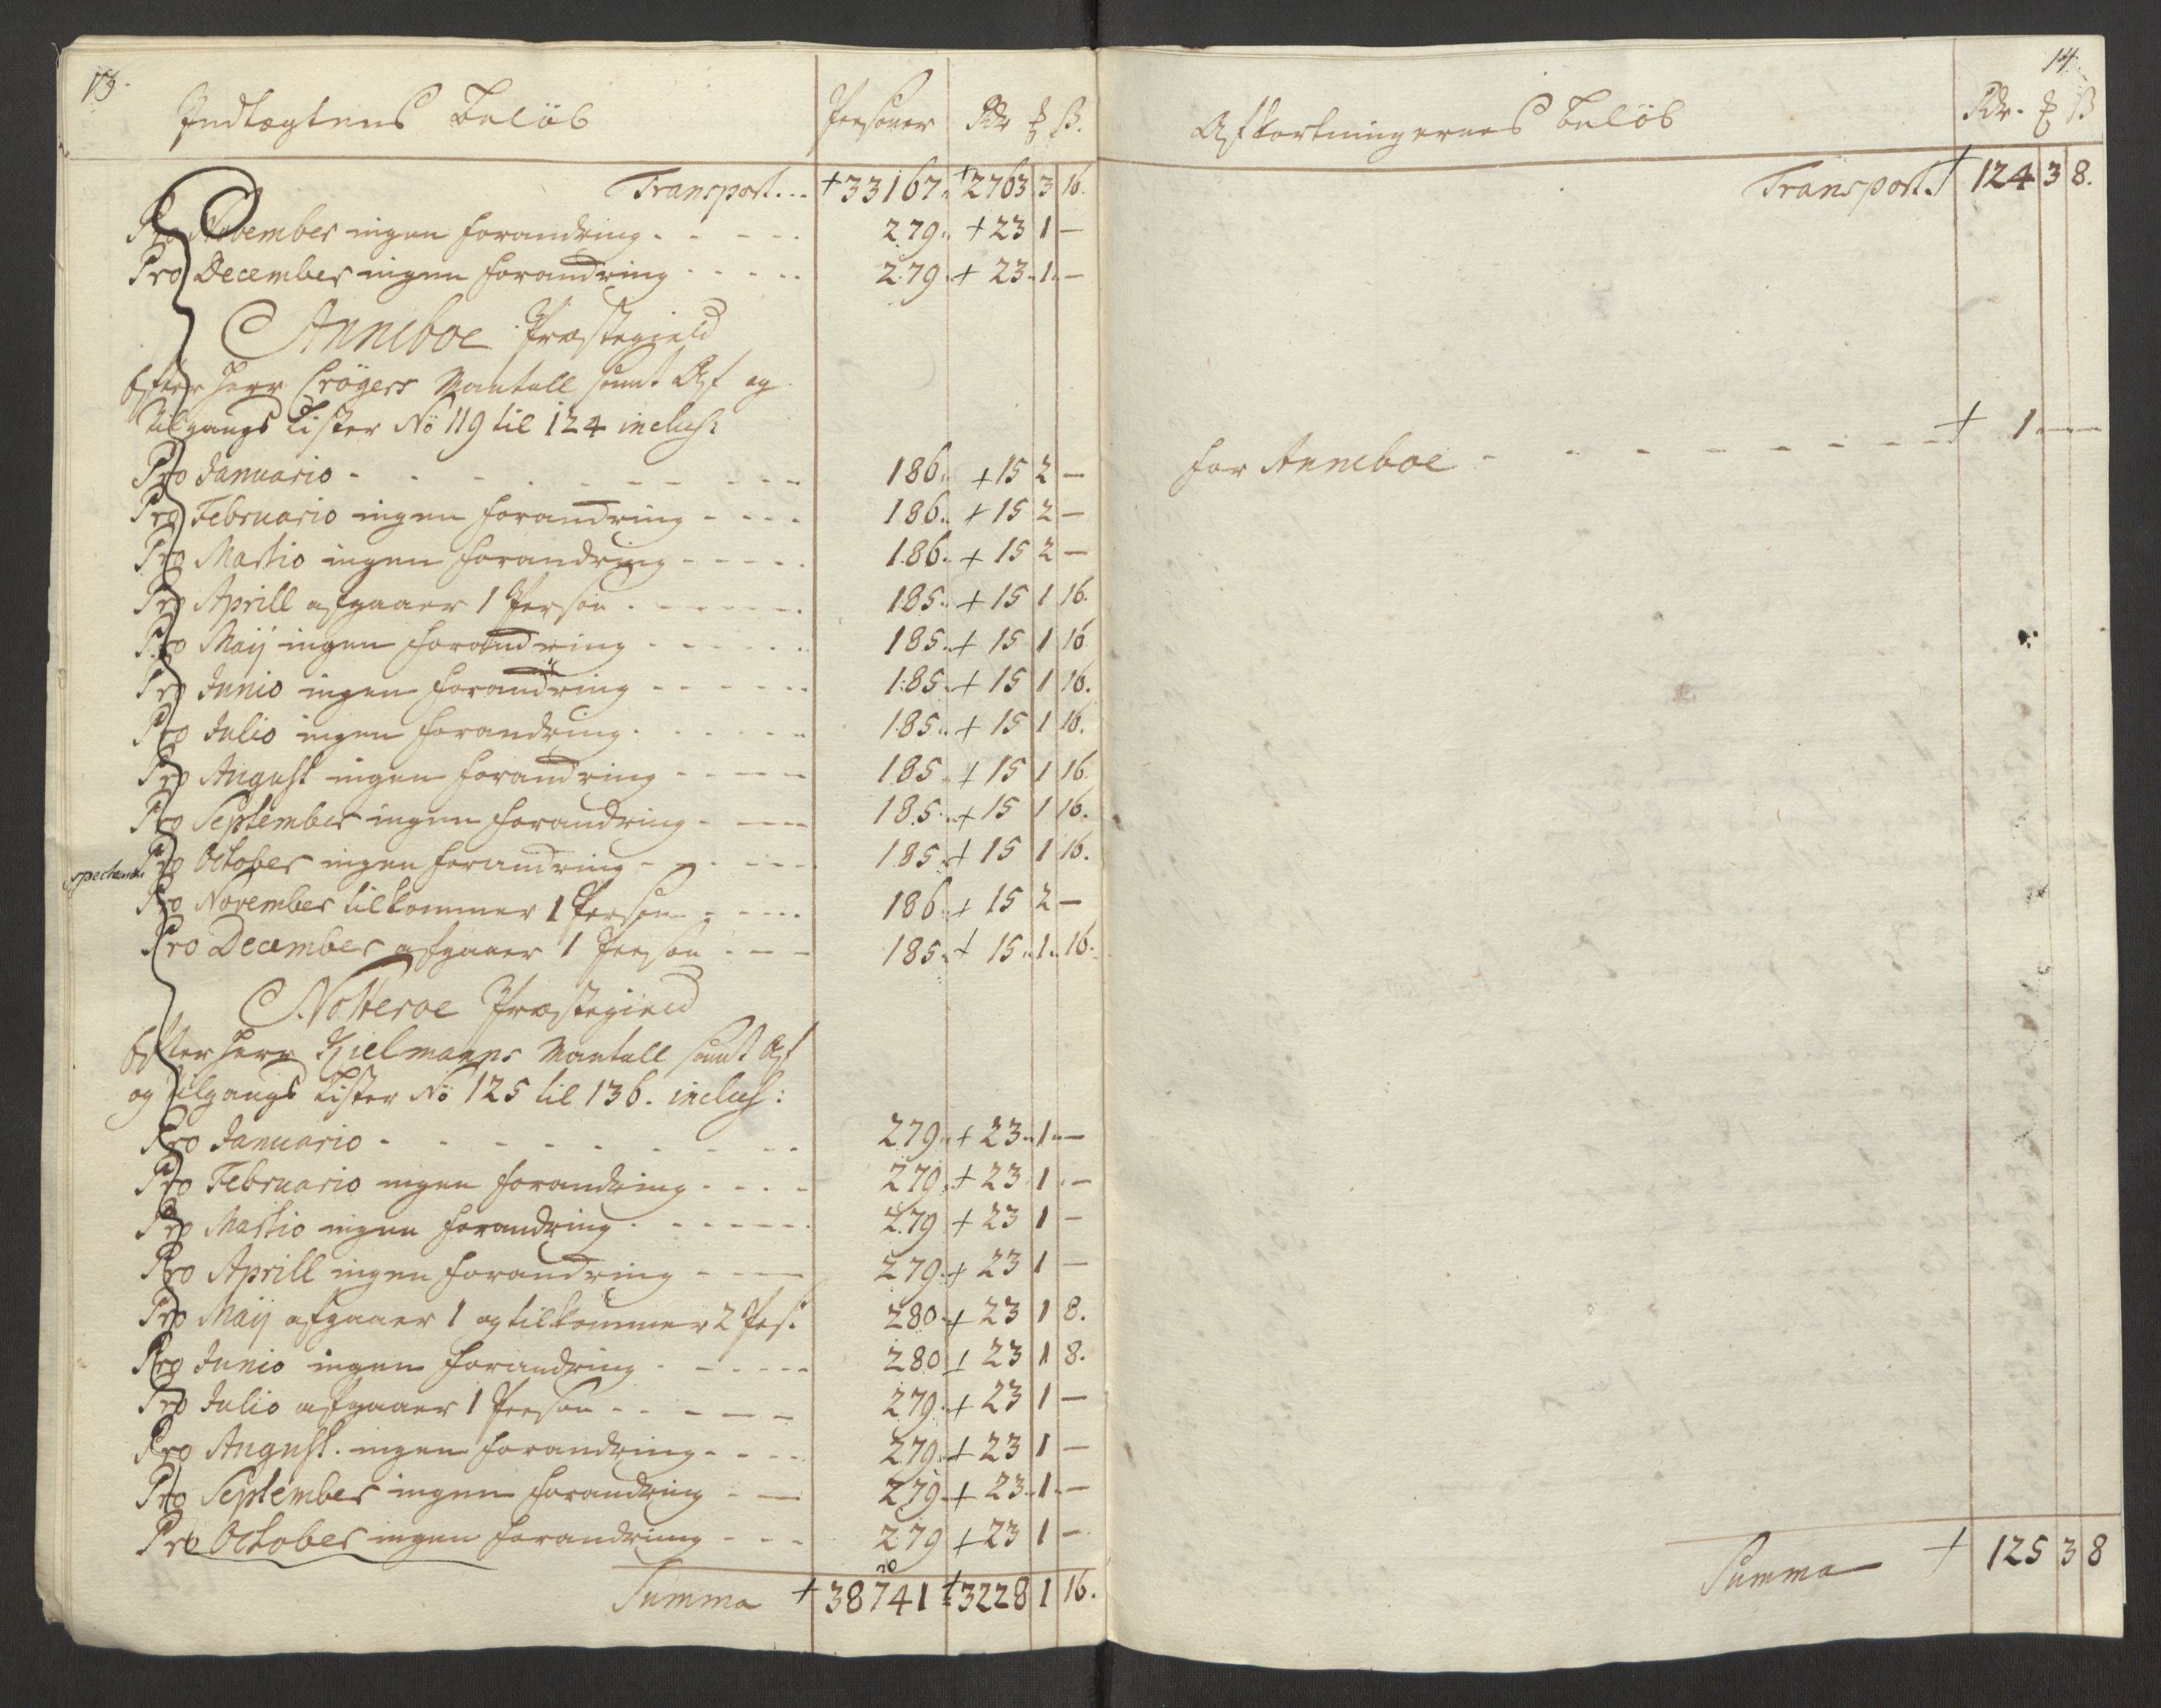 13.
Indtægtens Beløb Persohner Rdr ʒ β.
Transport... + 33167. + 2763 3 16.
Pro November ingen forandring - - - - - 279. + 23 1 —
Pro December ingen forandring - - - - - 279. + 23. 1. —
Anneboe Præstegield
Efter Herr Crøgers Mantall samt Af og
tilgangs Lister No 119 til 124 inclus:
Pro Januario - - - - - - - - - 186. + 15 2 —
Pro Februario ingen forandring - - - - 186. + 15 2 —
Pro Martio ingen forandring - - - - - 186. + 15 2 —
Pro Aprill afgaaer 1 Person - - - - - - 185. + 15 1 16.
Pro Maij ingen forandring - - - - - - 185. + 15 1 16
Pro Junio ingen forandring - - - - - - 185. + 15 1 16.
Pro Julio ingen forandring - - - - - - 185. + 15 1 16.
Pro August ingen forandring - - - - - 185. + 15 1 16.
Pro September ingen forandring - - - - 185. + 15 1 16.
Pro October ingen forandring - - - - - - 185. + 15 1 16.
Pro November tilkommer 1 Person - - - - 186. + 15 2 —
Pro December afgaaer 1 Person - - - 185. + 15. 1. 16.
Nøtteroe Præstegield
Efter Herr Kielmanns Mantall samt Af
og tilgangs Lister No 125 til 136. inclus:
Pro Januario - - - - - - - - - 279. + 23. 1. —
Pro Februario ingen forandring - - - - 279. + 23 1 —
Pro Martio ingen forandring - - - - - - 279 + 23 1 —
Pro Aprill ingen forandring - - - - 279. + 23 1 —
Pro Maij afgaaer 1 og tilkommer 2 Pers: 280. + 23 1 8.
Pro Junio ingen forandring - - - - - 280 + 23 1 8.
Pro Julio afgaaer 1 Person - - - - - 279. + 23 1 —
Pro August. ingen forandring - - - - 279. + 23 1 —
Pro September ingen forandring - - 279. + 23. 1. —
Pro October ingen forandring - - - 279 + 23 1 —
Summa + 38741 + 3228 1 16.
14.
Afkortningernes Beløb Rdr. ʒ β
Transport. + 124 3 8.
for Anneboe - - - - - - - - + 1. — —
Summa + 125 3 8